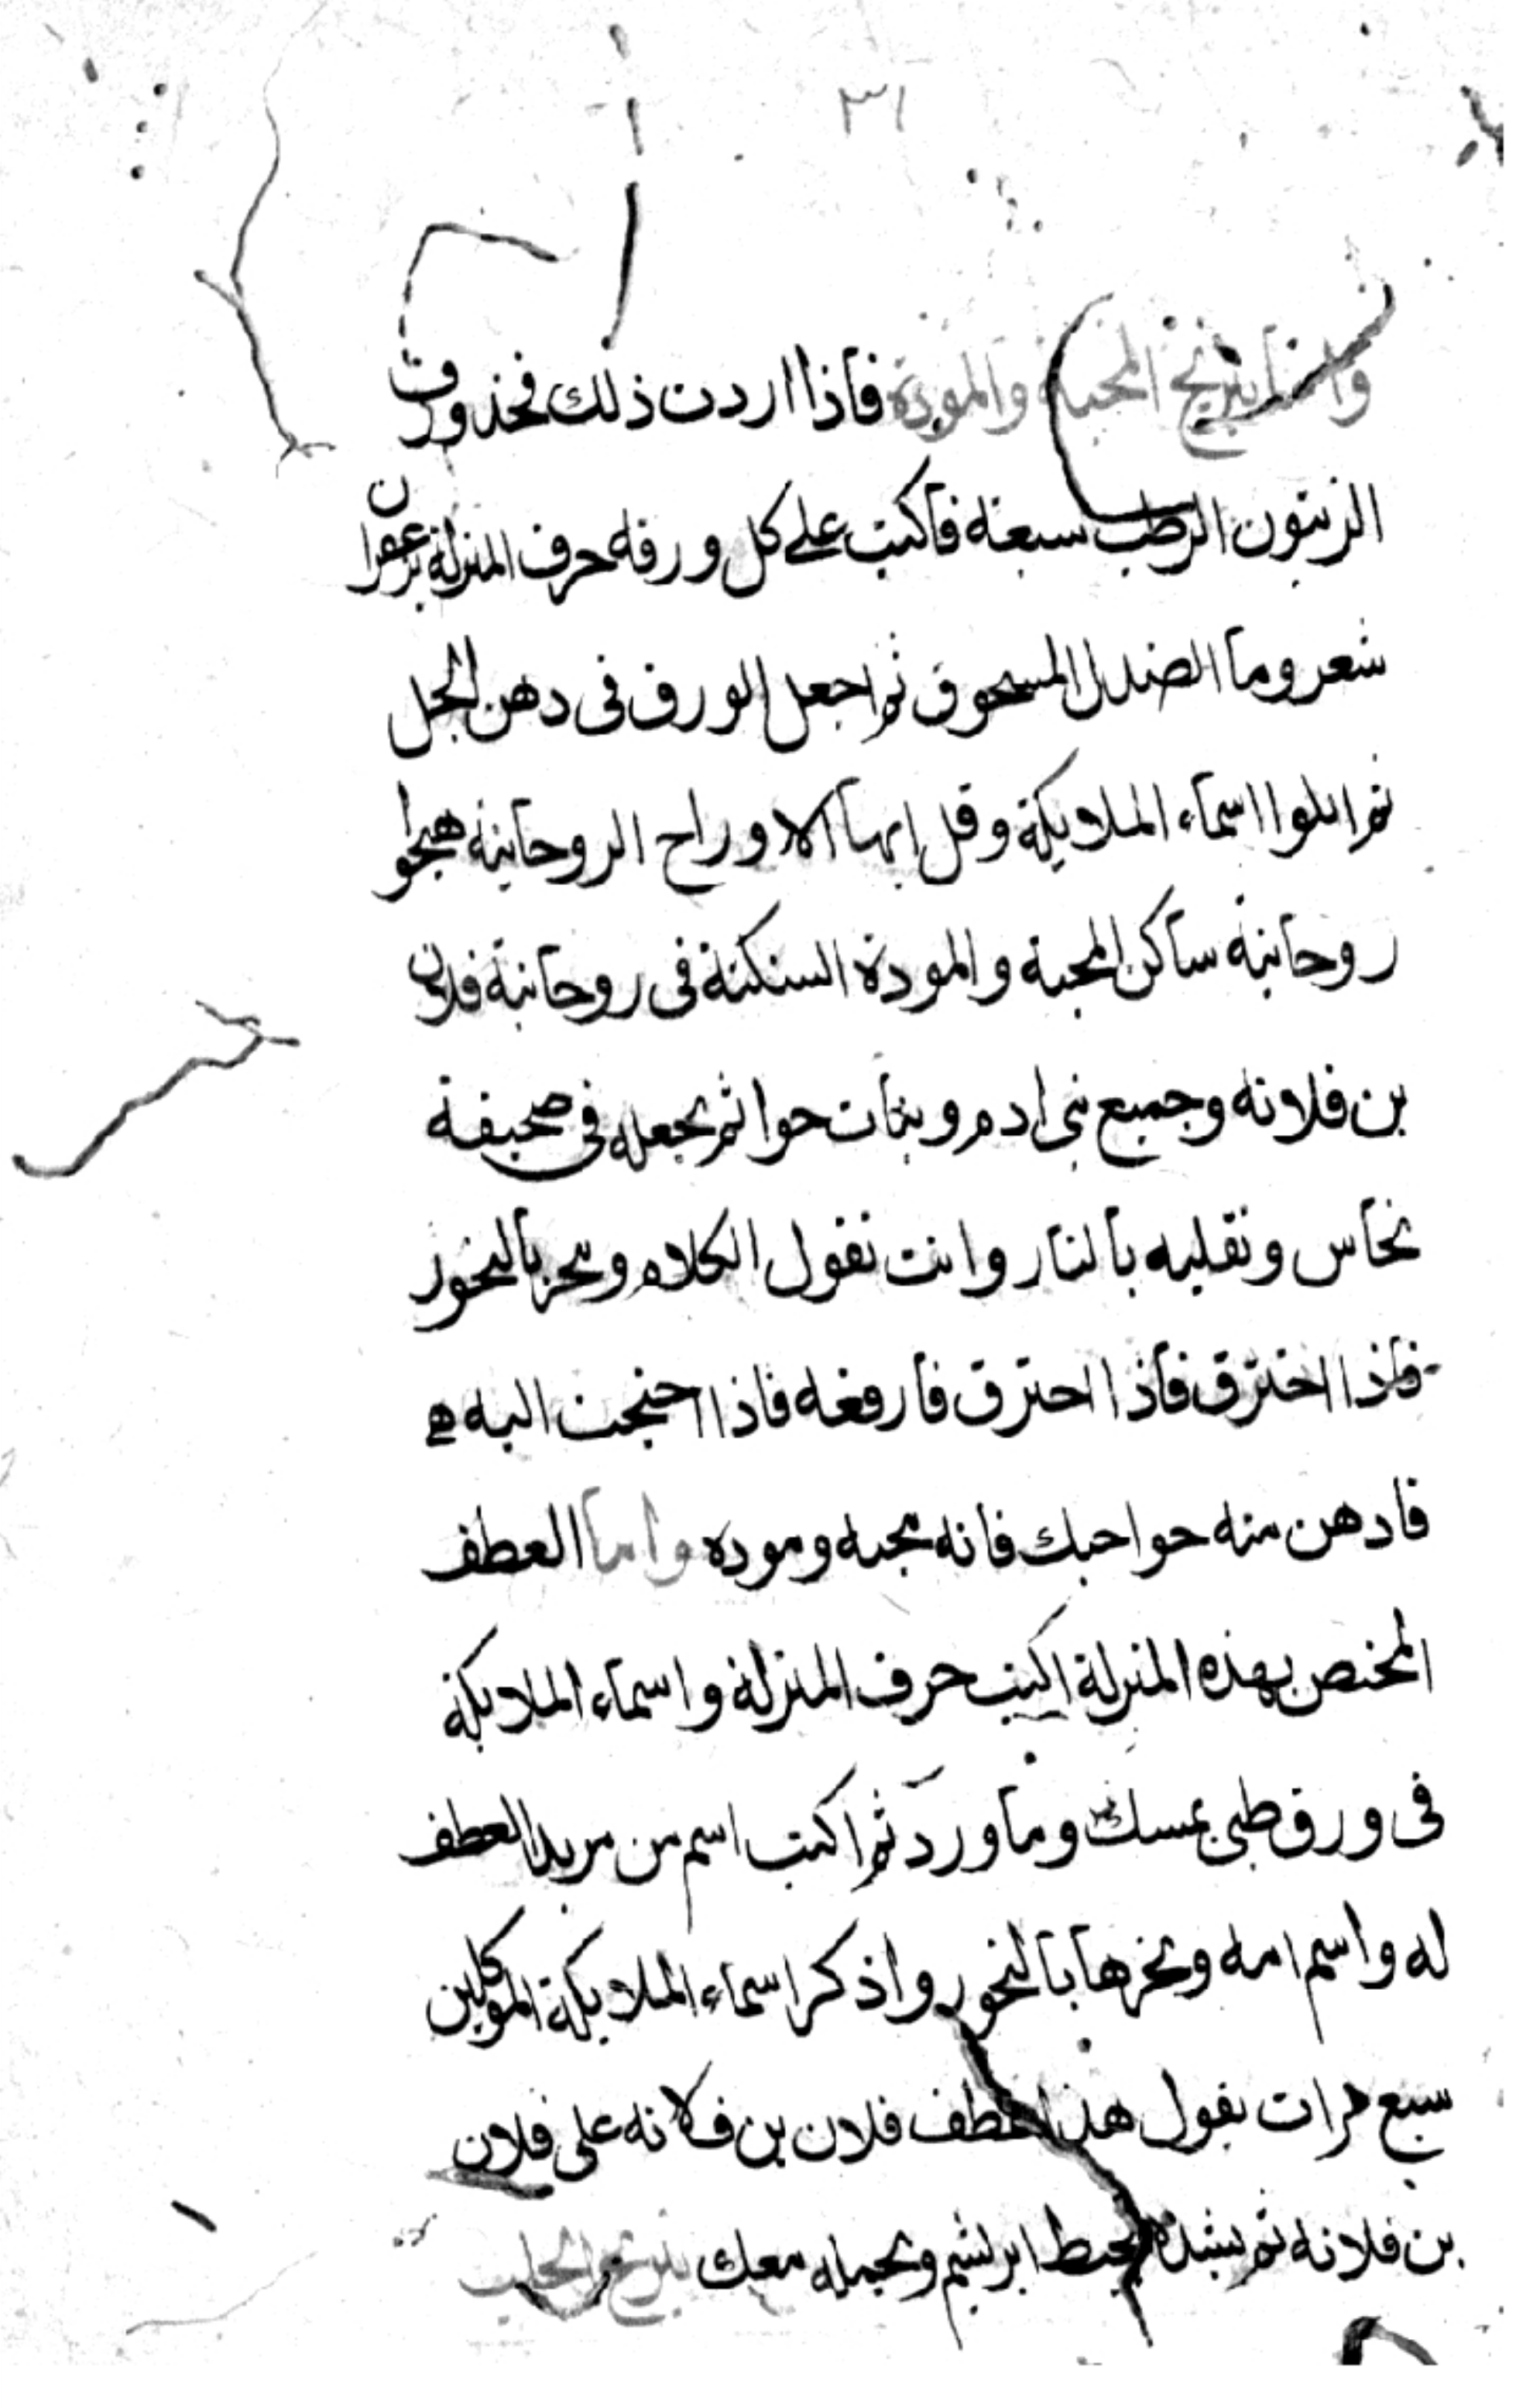 ٣١
واما نيرنج المحبة والمودة فاذا اردت ذلك فخذ ورق
الزيتون الرطب سبعة فاكتب على كل ورقه حرف المنزلة بزعفران
شعر وما الصندل المسحوق ثم اجعل الورق فى دهن الحل
ثم اتلوا اسماء الملايكة وقل ايها الاوراح الروحانية هيجوا
روحانية ساكن المحبة والمودة السنكنة فى روحانية فلان
بن فلانه وجميع بنى ادم وبنات حوا ثم تجعله فى صحيفة
نحاس وتقليه بالنار وانت تقول الكلام وتبخر بالبخور
فاذا احترق فاذا احترق فارفعه فاذا احتجت اليه
فادهن منه حواجبك فانه محبه ومودة واما العطف
المختص بهذه المنزلة اكتب حرف المنزلة واسماء الملايكة
فى ورق طبى بمسك وماورد ثم اكتب اسم من تريد العطف
له واسم امه وتبخرها بالبخور واذكر اسماء الملايكة الموكلين
سبع مرات تقول هذا عطف فلان بن فلانه على فلان
بن فلانه ثم تشده بخيط ابريشم وتحمله معك نيرنج الجلب